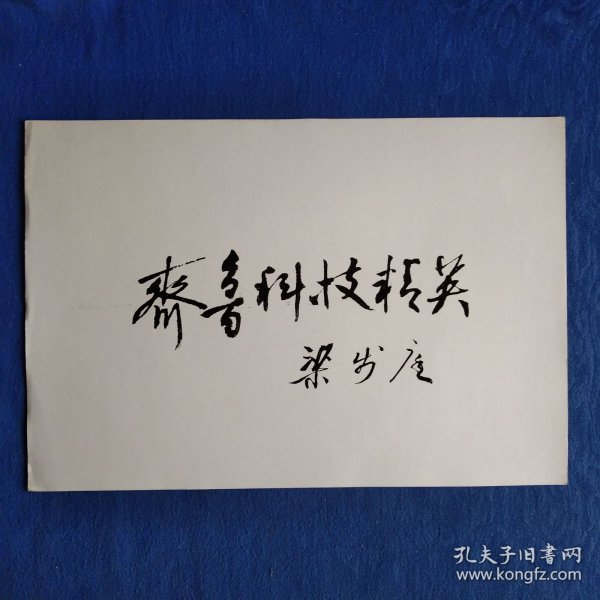 齐鲁科技精英
梁步庭
孔夫子旧書网
www.kongfz.com